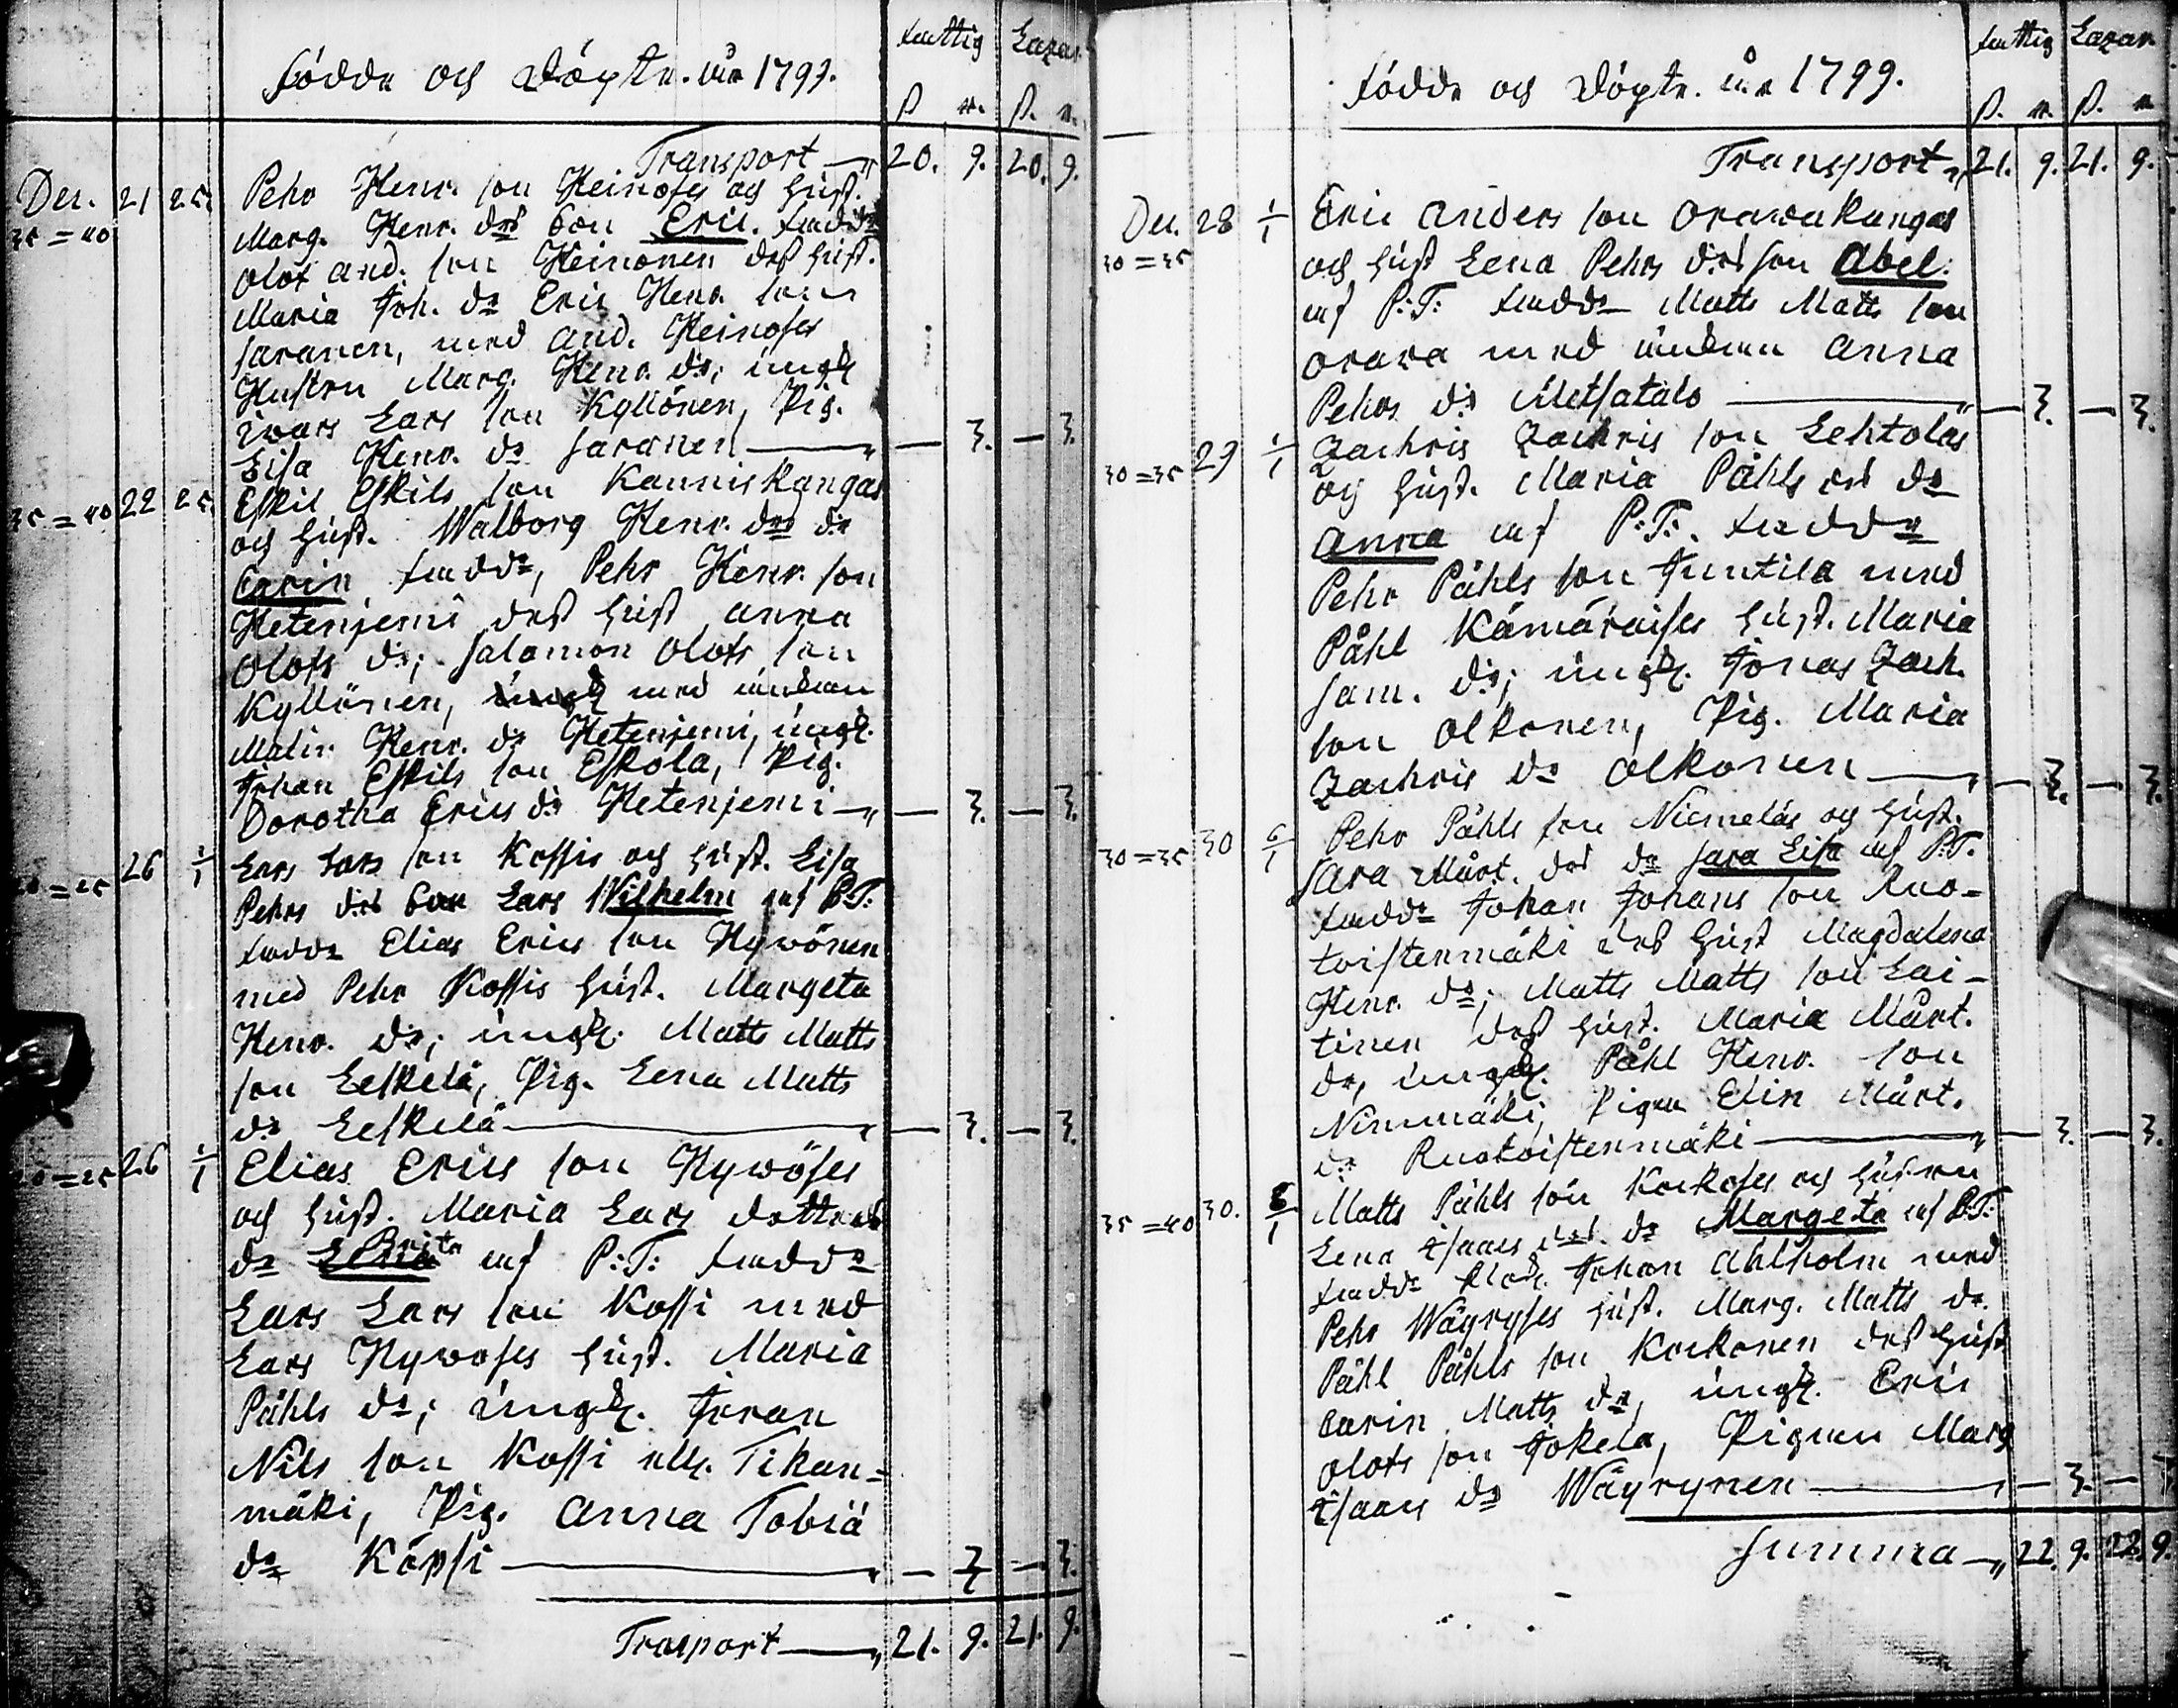 Födde och Döpte. år 1799.
fattig Lazar.
ß. r. ß. r.
Transport 20. 9. 20. 9.
Dec. 21 25. Pehr Henr. son Heinoses och hust.
35=40 Marg. Henr. drs son Eric. fadd:r
Olof And. son Heinonen dess hust.
Maria Joh. dr Eric Henr. son
Saranen, med And. Heinoses
Hustru Marg. Henr. dr; ungk
Ivars Lars son Kyllönen, Pig.
Lisa Henr. dr Saranen — 3. — 3.
35=40 22 25. Eskil Eskils son Kauniskangas
och hust. Walborg Henr. drs dr
Carin fadd:r, Pehr Henr. son
Hetenjemi dess hust Anna
Olofs dr; Salomon Olofs son
Kyllönen, med änkan
Malin Henr. dr Hetenjemi, ungk.
Johan Eskils son Eskola, Pig.
Dorotha Erics dr Hetenjemi — 3. — 3.
26 1/1 Lars Lars son Kossis och hust. Lisa
20=25 Pehrs drs son Lars Wilhelm af P.T.
fadd:r Elias Erics son Hywönen
med Pehr Kossis hust. Margeta
Henr. dr; ungk. Matts Matts
son Leskelä, Pig. Lena Matts
dr Leskelä — 3. — 3.
20=25 26 1/1 Elias Erics son Hywöses
och hust. Maria Lars dotters
Brita
dr af P:T: fadd:r
Lars Lars son Kossi med
Lars Hywoses hust. Maria
Påhls dr; ungk. Joran
Nils son Kossi ell. Tikan-
mäki, Pig. Anna Tobiä
dr Köpsi — 3 — 3.
Transport 21. 9. 21. 9.
Födde och Döpte. år 1799.
fattig Lazar.
ß. r. ß. r.
Transport 21. 9. 21. 9.
Dec. 28 1/1 Eric Anders son Orawakangas
30=35 och hust Lena Pehrs drs son Abel.
af P:T: fadd:r Matts Matts son
Orava med änkan Anna
Pehrs dr Metsatalo — 3. — 3.
30=35 29 1/1 Zachris Zachris son Lehtolas
och hust. Maria Påhls drs dr
Anna af P:T:. fadd:r
Pehr Påhls son Juntila med
Påhl Kämäräises hust. Maria
Sam. dr; ungk. Jonas Zach.
son Olkonen, Pig. Maria
Zachris dr Olkonen — 3. — 3.
30=35 30 6/1 Pehr Påhls son Niemeläs och hust.
Sara Mårt. drs dr Sara Lisa af P:T.
fadd:r Johan Johans son Ruo-
toistenmäki dess hust Magdalena
Henr. dr; Matts Matts son Lai-
tinen dess hust. Maria Mårt.
dr, ungk. Påhl Henr. son
Ninimäki, Pigan Elin Mårt.
dr Ruotoistenmäki — 3. — 3.
35=40 30. 6/1 Matts Påhls son Korkoses och hustrun
Lena Isaacs drs dr Margeta af P:T:
fadd:r Johan Ahlholm med
Pehr Wäyryses hust. Marg. Matts dr.
Påhl Påhls son Korkonen dess hust
Carin Matts dr, ungk. Eric
Olofs son Jokela, Pigan Marg
Isaacs dr Wäyrynen — 3. —
Summa 22. 9. 22. 9.